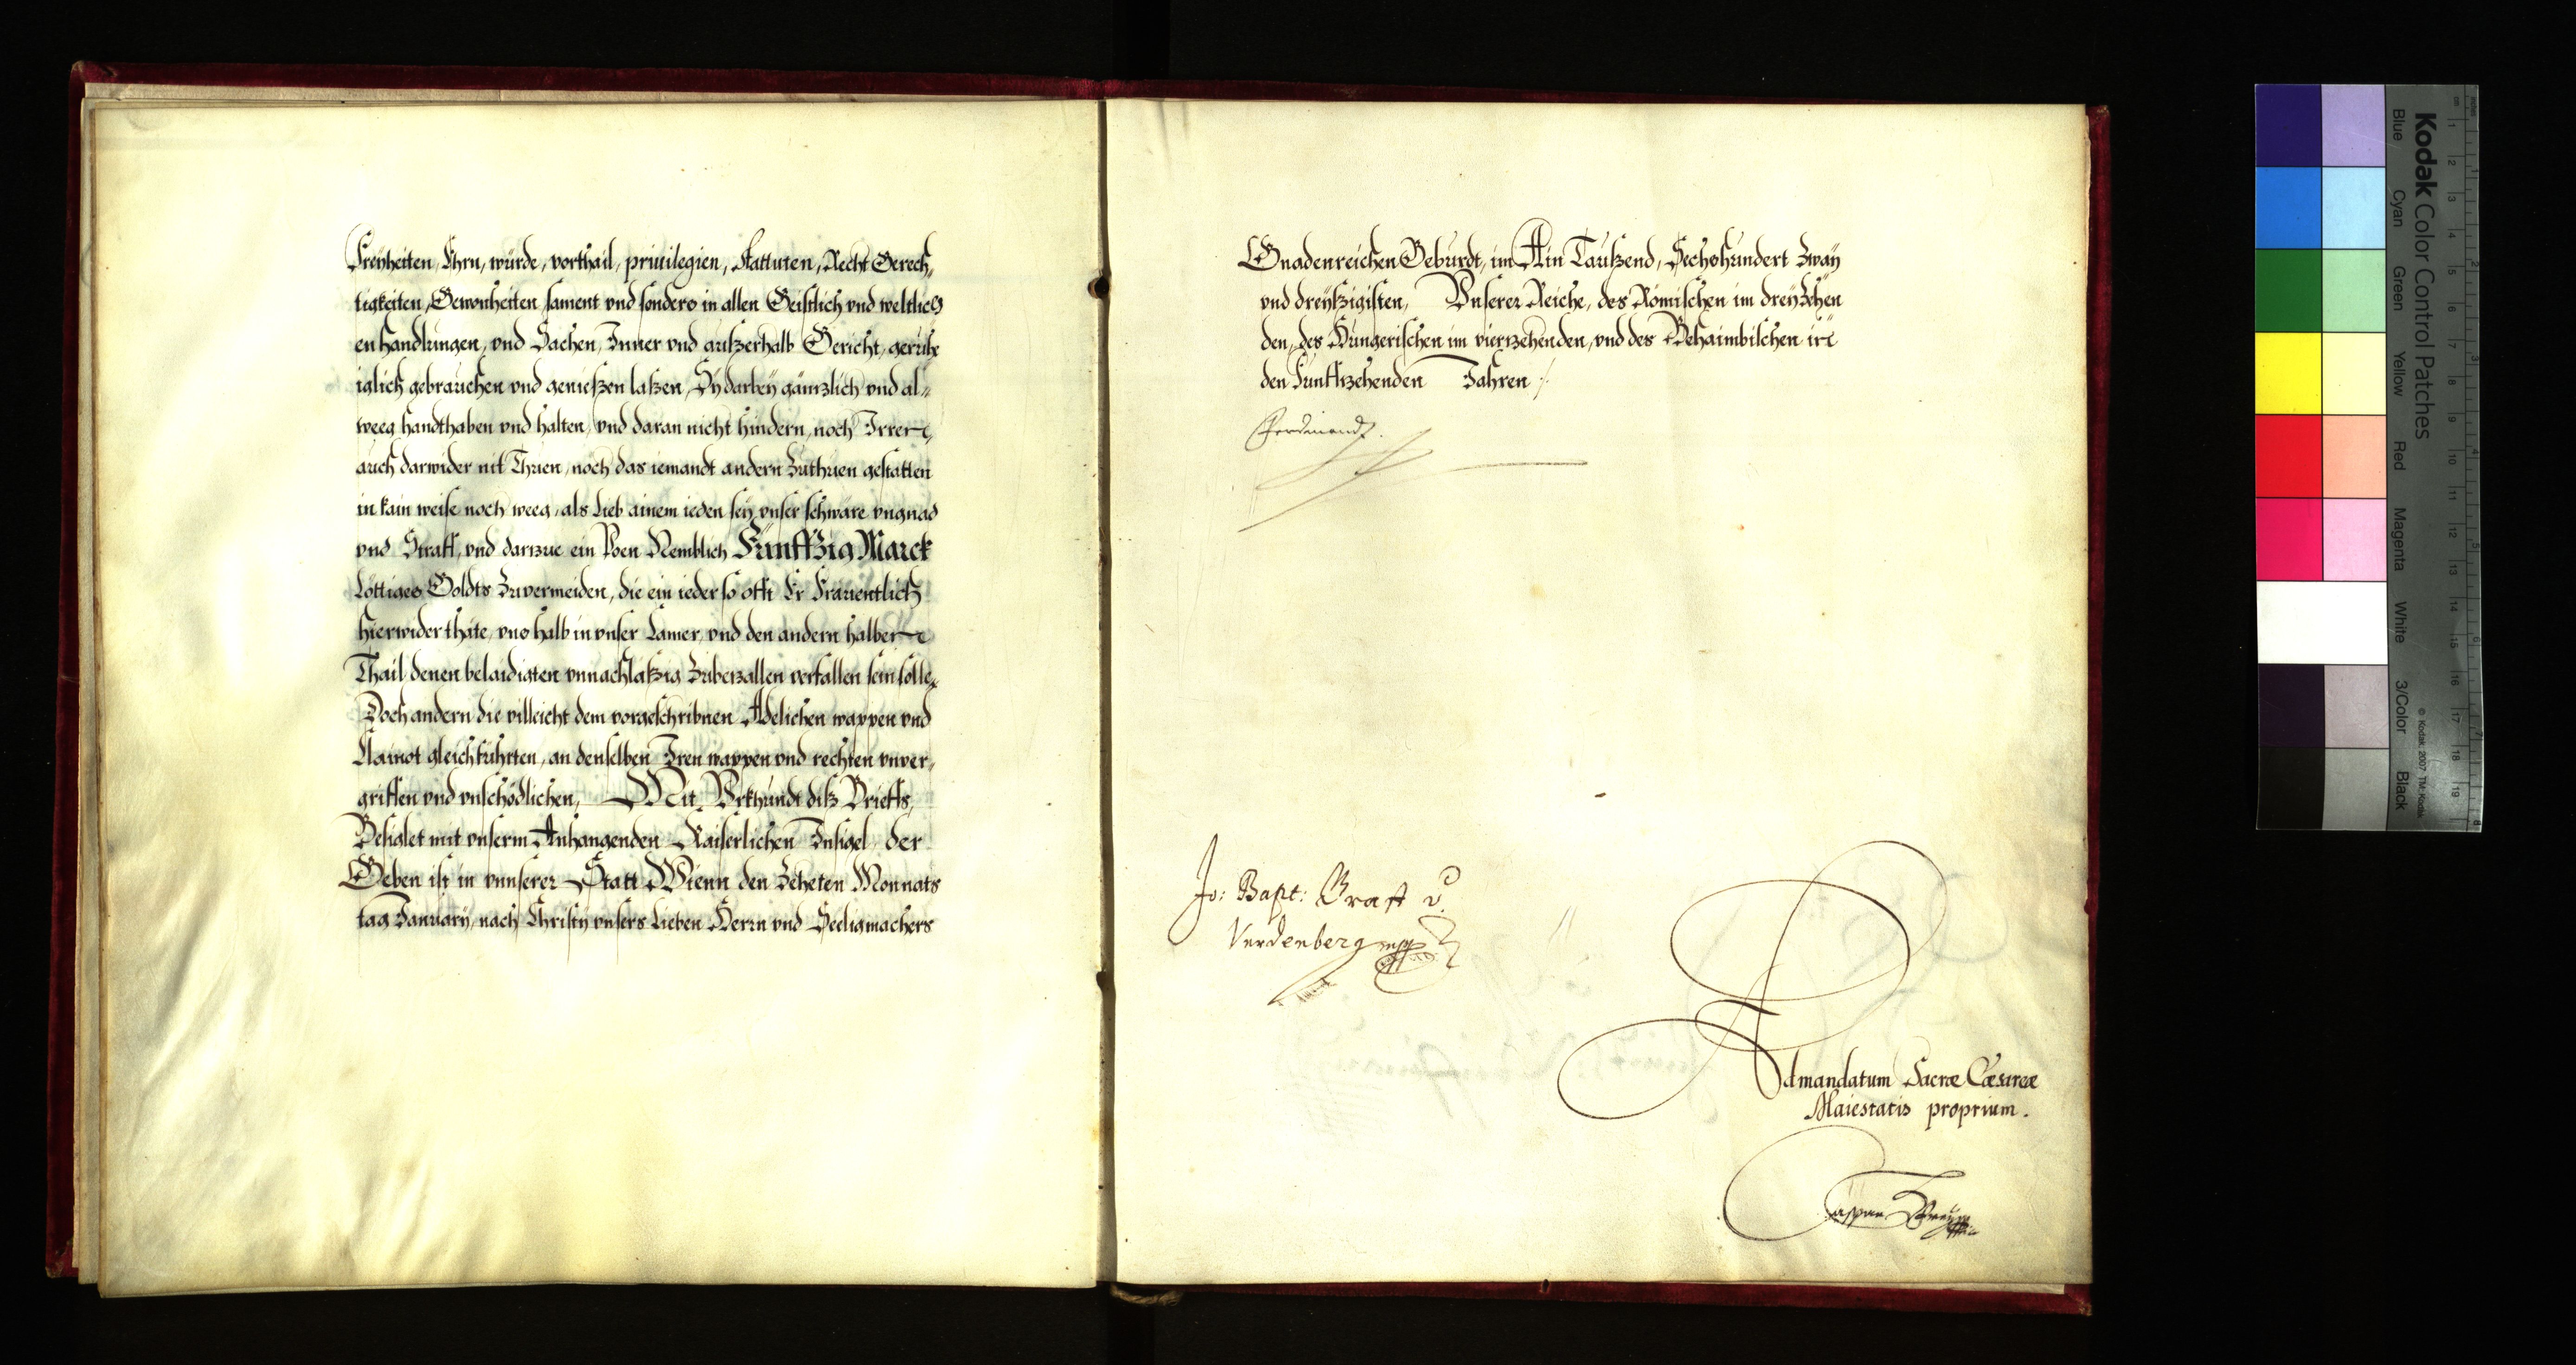 Freyheiten, Ehrn, würde, vorthail, priuilegien, Stattuten, Recht Gerech,
tigkeiten, Gewonheiten sament vnd sonders in allen Geistlich vnd weltlich
en handlungen, vnd Sachen, Inner vnd ausserhalb Gericht, geruhe
iglich gebrauchen vnd geniessen lassen, Sy darbey gäntzlich vnd al„
weeg handthaben vnd halten, vnd daran nicht hindern, noch Irren,
auch darwider nit Thuen, noch das iemandt andern Zuthuen gestatten
in kain weise noch weeg, als Lieb ainem ieden sey vnser schwäre vngnad
vnd Straff, vnd dartzue ein Poen Nemblich Fünffzig Marck
Löttiges Goldts Zuvermeiden, die ein ieder so offt Er Frauentlich
hierwider thäte, vns halb in vnser Camer, vnd den andern halben
Thail denen belaidigten vnnachläßig Zubezallen verfallen sein solle,
Doch andern die villeicht dem vorgeschribnen Adelichen wappen vnd
Clainot gleich führten, an denselben Iren wappen vnd rechten vnver,
griffen vnd vnschödlichen, Mit Vrkhundt diß Brieffs,
Besiglet mit vnserm Anhangenden Kaiserlichen Insigel der
Geben ist in vnnserer Statt Wienn den Zeheten Monnats
tag January, nach Christy vnsers Lieben Herrn vnd Seeligmachers
Gnadenreichen Geburdt, im Ain Taußend, Sechshundert Zway
vnd dreyßigisten, Vnserer Reiche, des Römischen im dreyzehen
den, des Hungerischen im vierzehenden, vnd des Behaimbischen im
den Funffzehenden Jahren
Ferdinandt.
Jo: Bapt: Graff v.
Verdenberg mpp
Admandatum Sacræ Cæsareæ
Maiestatis proprium.
Caspar